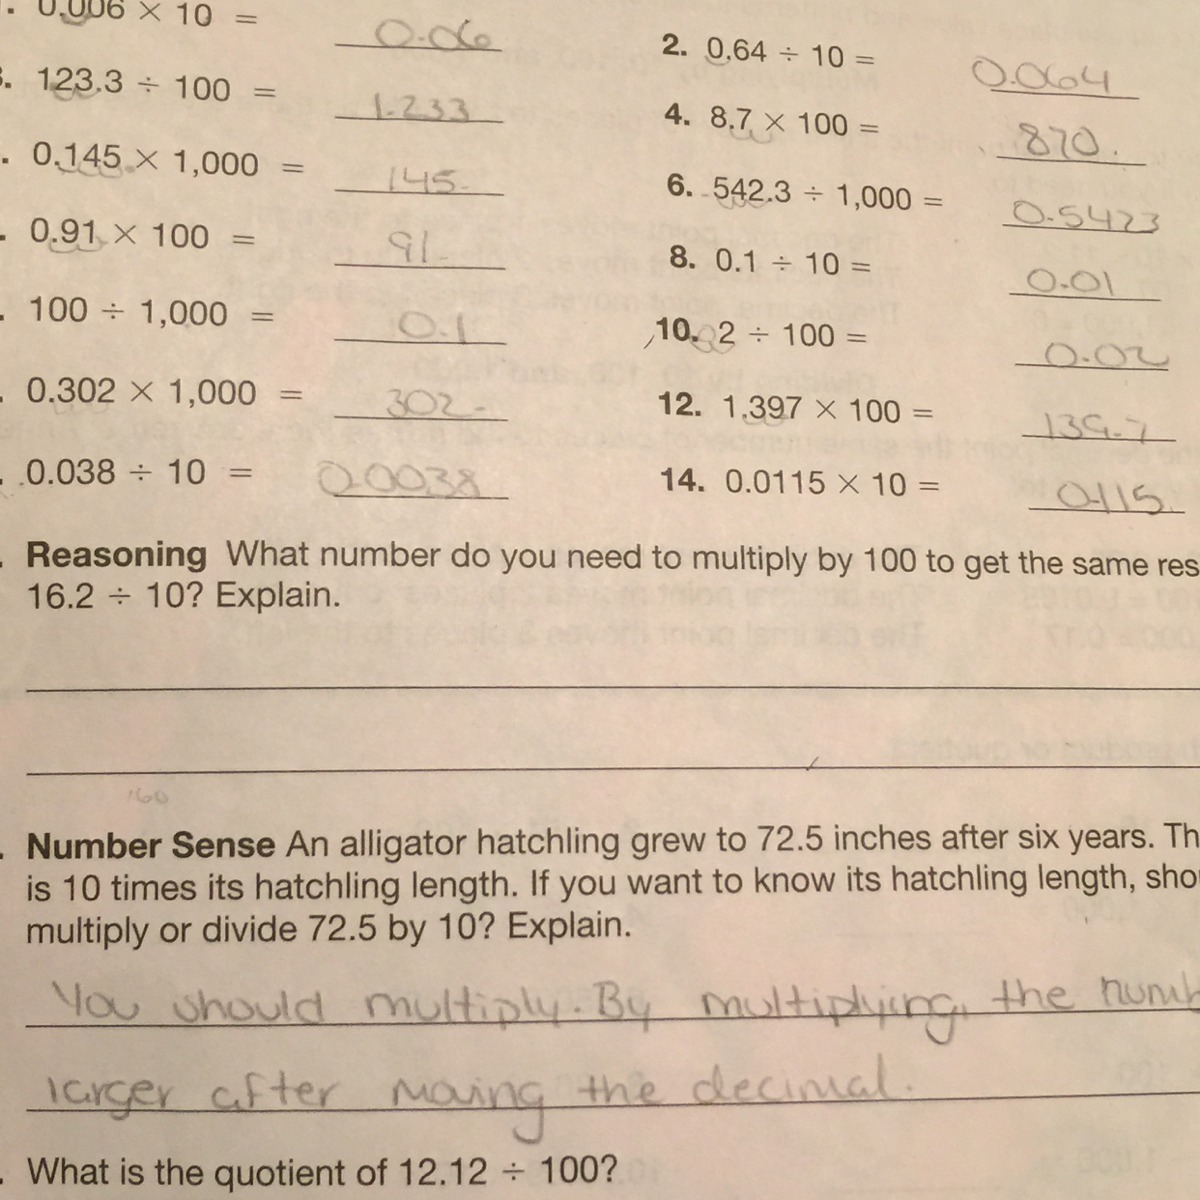 . 0.006 × 10 = 0.06
2. 0.64 ÷ 10 = 0.064
3. 123.3 ÷ 100 = 1.233
4. 8.7 × 100 = 870.
. 0.145 × 1,000 = 145.
6. 542.3 ÷ 1,000 = 0.5423
. 0.91 × 100 = 91.
8. 0.1 ÷ 10 = 0.01
. 100 ÷ 1,000 = 0.1
10. 2 ÷ 100 = 0.02
. 0.302 × 1,000 = 302.
12. 1.397 × 100 = 139.7
. 0.038 ÷ 10 = 0.0038
14. 0.0115 × 10 = 0.115
. Reasoning What number do you need to multiply by 100 to get the same res
16.2 ÷ 10? Explain.
160
. Number Sense An alligator hatchling grew to 72.5 inches after six years. Th
is 10 times its hatchling length. If you want to know its hatchling length, sho
multiply or divide 72.5 by 10? Explain.
You should multiply. By multiplying, the numb
larger after moving the decimal.
. What is the quotient of 12.12 ÷ 100?